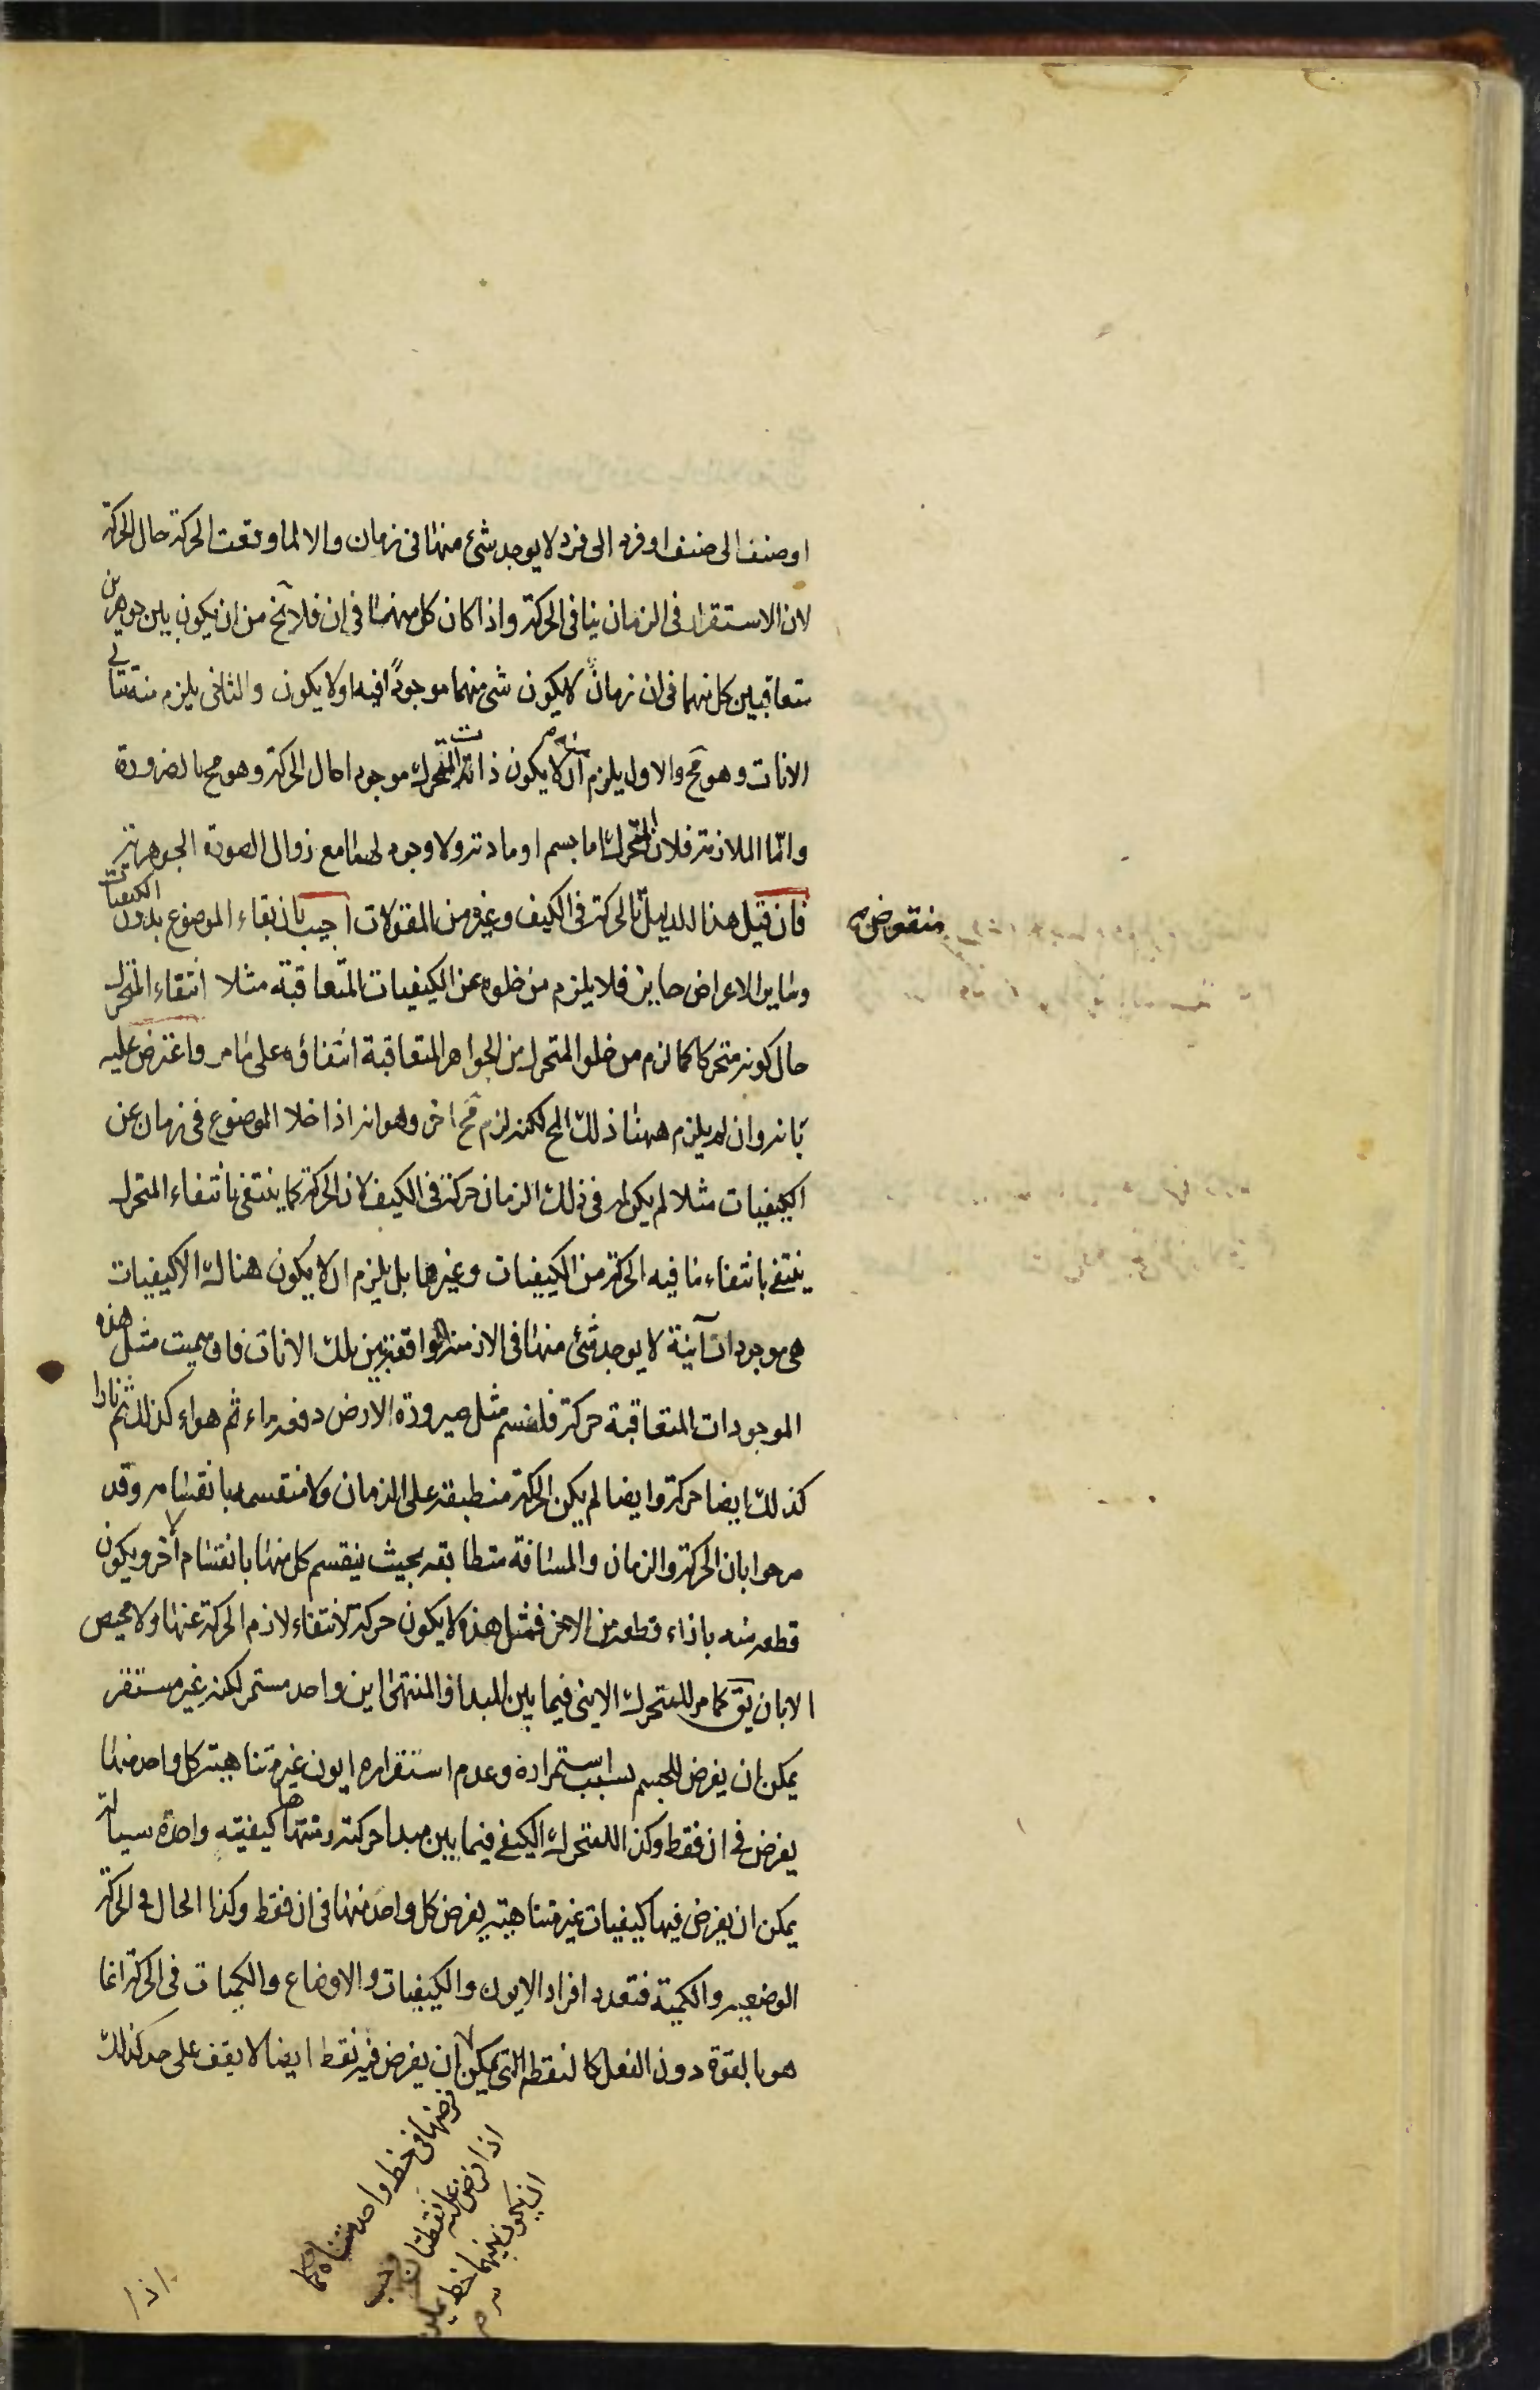 او صنف الى صنف او فرد الى فرد لا يوجد شئ منها فى زمان والا لما وقعت الحركة حال الحركة
لان الاستقرار فى الزمان ينافى الحركة واذا كان كل منهما فى ان فلا يخ من ان يكون بين جوهرين
متعاقبين كل منهما فى ان زمان لا يكون شى منهما موجوداً فيه اولا يكون والثانى يلزم منه تتالى
الانات وهو مح والاول يلزم منه ان لا يكون ذات المتحرك موجودا حال الحركة وهو مح بالضرورة
وامّا الملازمة فلان المتحرك اما جسم او مادته ولا وجود لهما مع زوال الصورة الجوهرية
فان قيل هذا الدليل بالحركة فى الكيف وغيره من المقولات اجيب بان بقاء الموضوع بدون الكيفيات
منقوض
وساير الاعراض جايز فلا يلزم من خلوه عن الكيفيات المتعاقبة مثلا انتفاء المتحرك
حال كونه متحركا كما لزم من خلو المتحرك من الجواهر المتعاقبة انتفاؤه على ما مر واعترض عليه
بانه وان لم يلزم ههنا ذلك المح لكنه لزم مح اخر وهو انه اذا خلا الموضوع فى زمان عن
الكيفيات مثلا لم يكن له فى ذلك الزمان حركة فى الكيف لان الحركة كما ينتفى بانتفاء المتحرك
ينتفى بانتفاء ما فيه الحركة من الكيفيات وغيرها بل يلزم ان لا يكون هناك الا كيفيات
هى موجودات آنية لا يوجد شئ منها فى الازمنة الواقعة بين تلك الانات فان سميت مثل هذه
الموجودات المتعاقبة حركة فلنسم مثل صيرورة الارض دفعه ماء ثم هواء كذلك ثم نارا
كذلك ايضا حركة وايضا لم يكن الحركة منطبقة على الزمان ولا منقسمه بانقسامه وقد
صرحوا بان الحركة والزمان والمسافة متطابقه بحيث ينقسم كل منها بانقسام الاخر ويكون
قطعه منه بازاء قطعه من الاخر فمثل هذه لا يكون حركة لانتفاء لازم الحركة عنها ولا محيص
الا بان يق كما مر للمتحرك الاينى فيما بين المبدا والمنتهى اين واحد مستمر لكنه غير مستقر
يمكن ان يفرض للجسم بسبب استمراره وعدم استقراره ايون غير متناهية كل واحد منها
يفرض فى ان فقط وكذا للمتحرك الكيفى فيما بين مبدا حركته ومنتهاها كيفية واحدة سيالة
يمكن ان يفرض فيها كيفيات غير متناهية يفرض كل واحد منها فى ان فقط وكذا الحال فى الحركة
الوضعيه والكمية فتعدد افراد الايون والكيفيات والاوضاع والكميات فى الحركة انما
هو بالقوة دون الفعل كالنقطه التى يمكن ان يفرض فيه نقط ايضا لا يقف على حد كذلك
فرضها فى خط واحد متناه فكما
اذا فرض عليه نقطتان وجب
ان يكون بينهما خط يمكن
صح
اذا